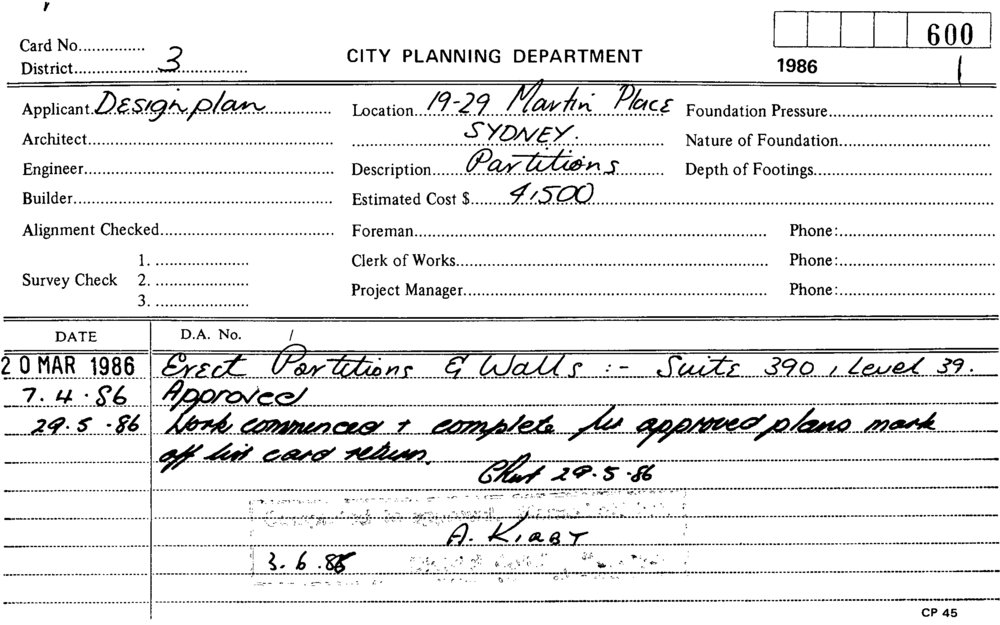 600
Card No...............
District 3
CITY PLANNING DEPARTMENT
1986
Applicant Designplan
Location 19-29 Martin Place
Foundation Pressure
Architect
SYDNEY.
Nature of Foundation
Engineer
Description Partitions
Depth of Footings
Builder
Estimated Cost $ 4,500
Alignment Checked
Foreman
Phone:
1.
Clerk of Works
Phone:
Survey Check 2.
Project Manager
Phone:
3.
DATE D.A. No. /
20 MAR 1986 Erect Partitions & Walls :- Suite 390, Level 39.
7.4.86 Approved
29.5.86 Work commenced + complete approved plans mark
off card return.
29.5.86
A. KIRBY
3.6.86
CP 45